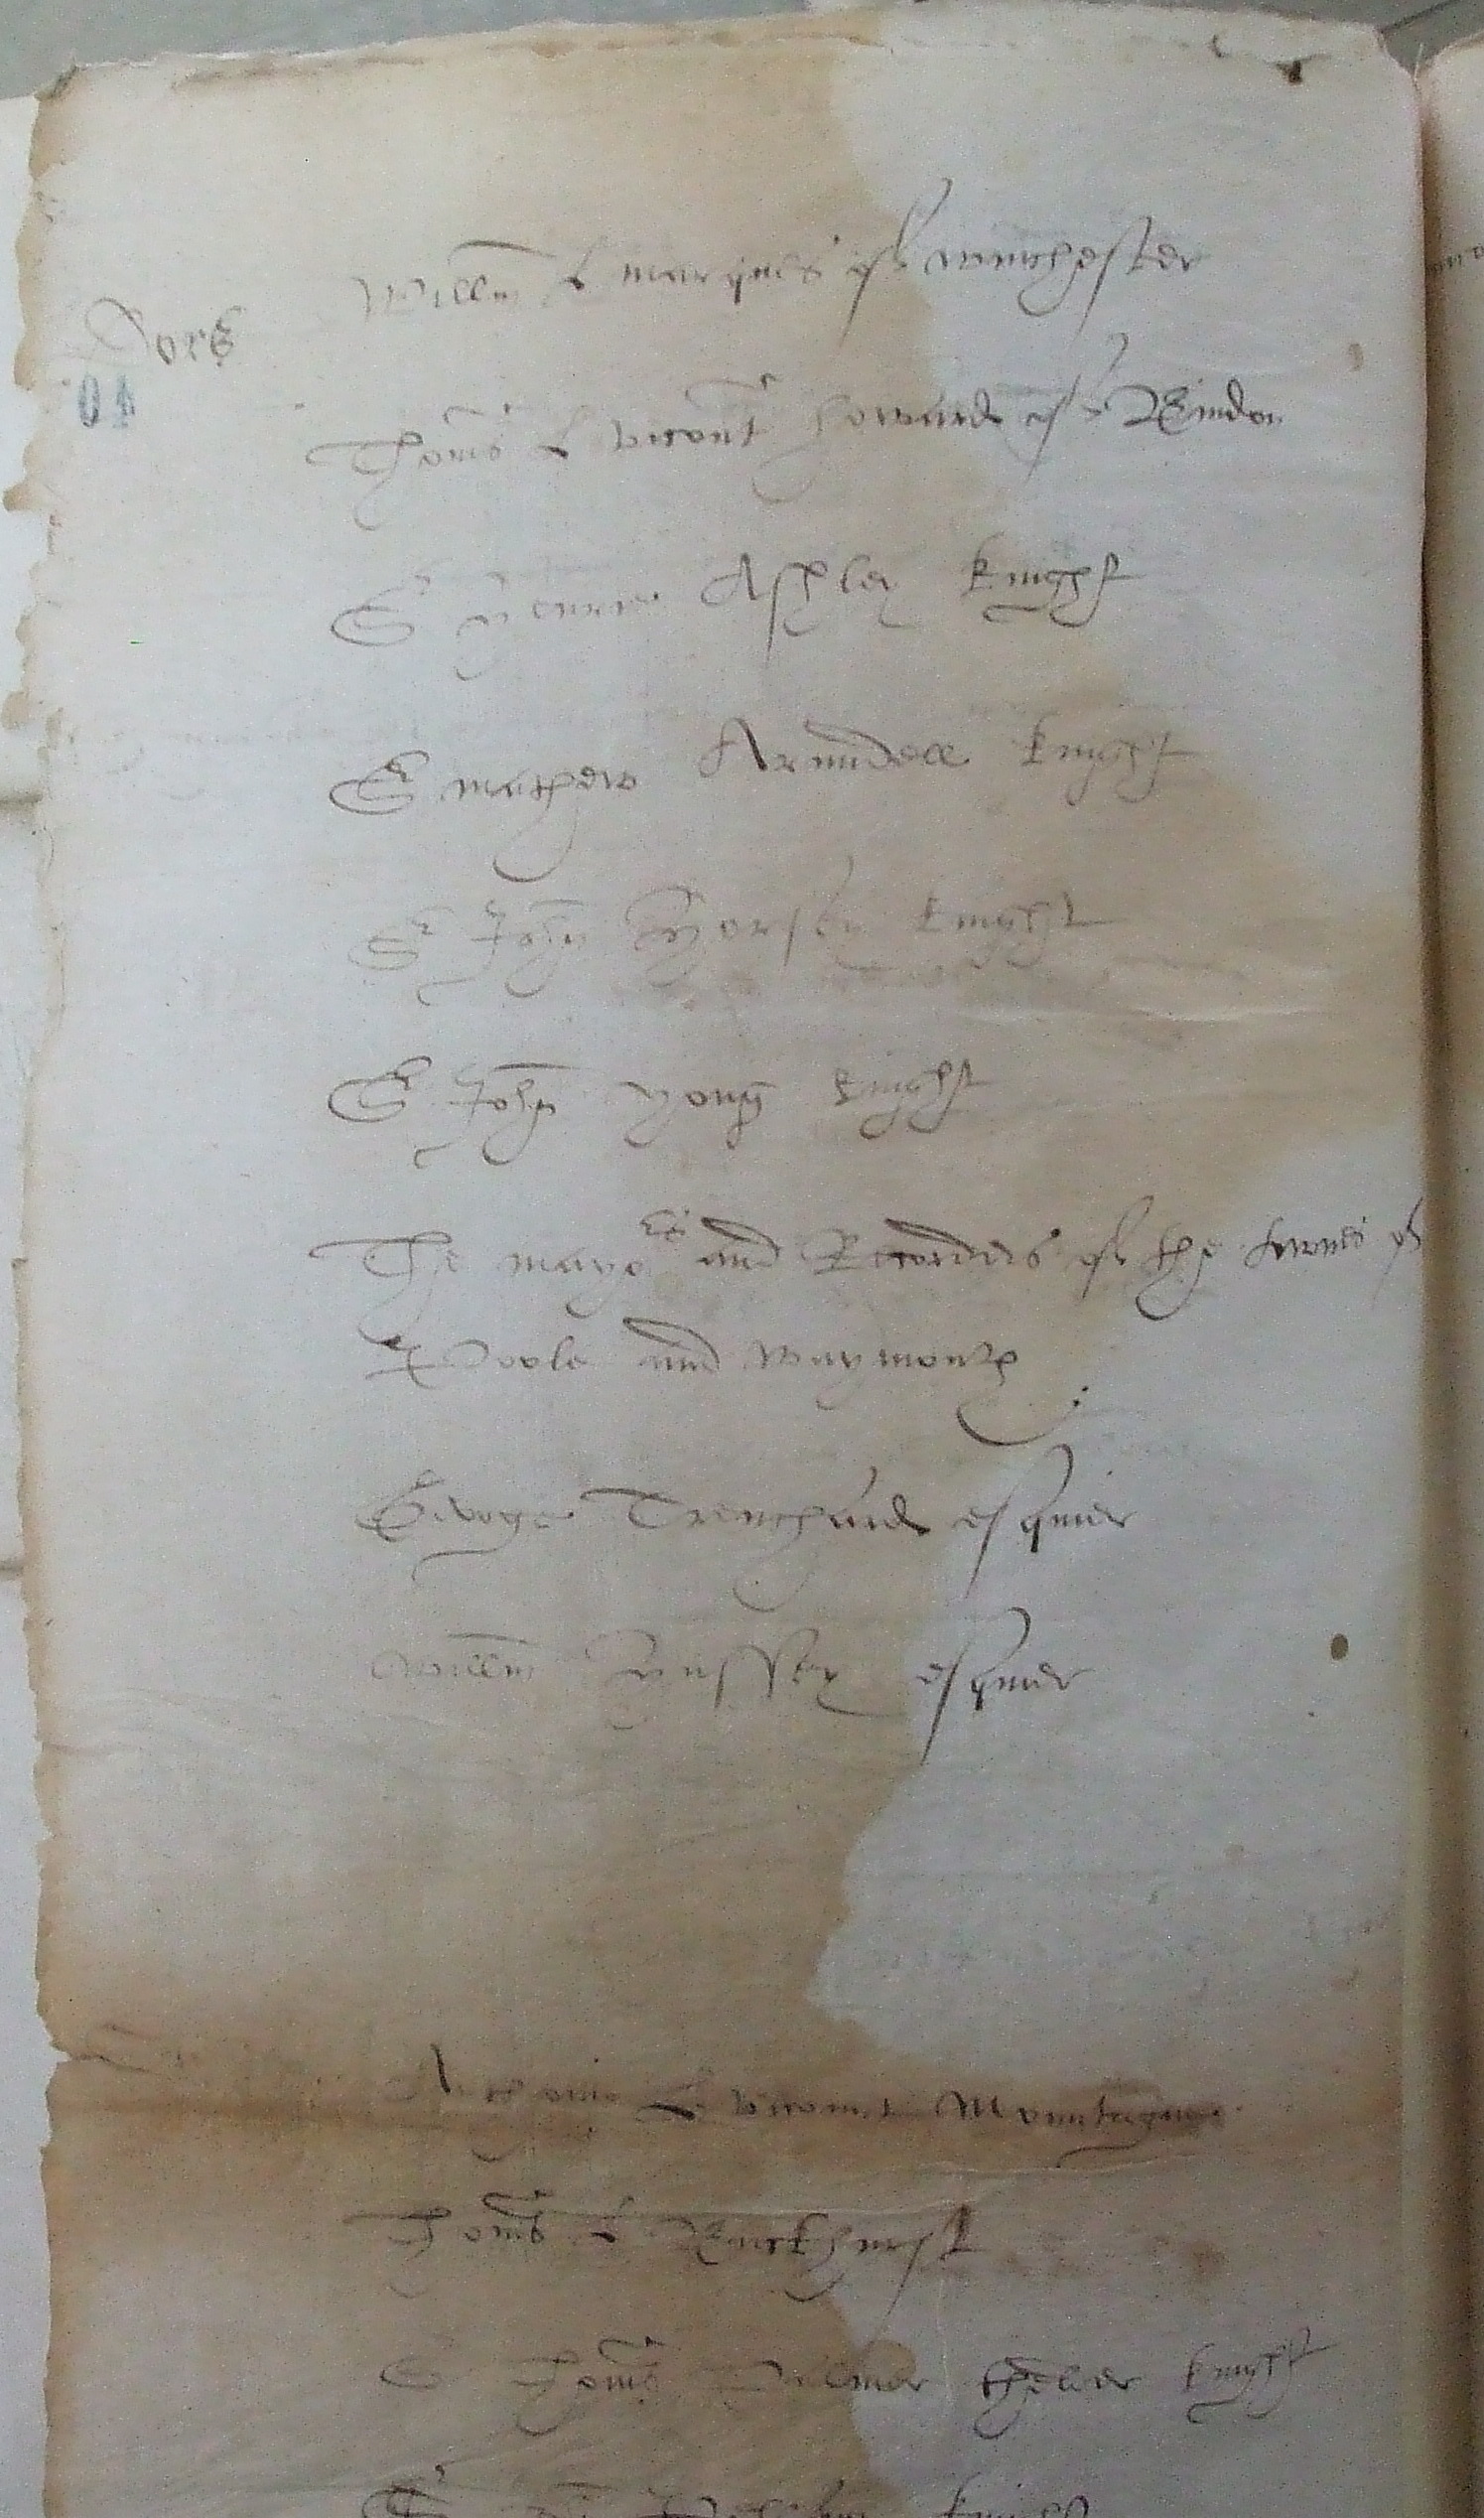 Willm L marques of winchester
Dors
Thoms L vicont howard of Bindon
Sr henrie Ashley knight
Sr mathew Arundell knight
Sr John Horsey knight
Sr John yong knight
The mayors and Recorders of the townes of
Poole and waymouth
George Trenchard esquier
Willm Hussey esquier
L vicount Mountague
Thoms L Buckhurst
S Thoms Palmer thelder knight